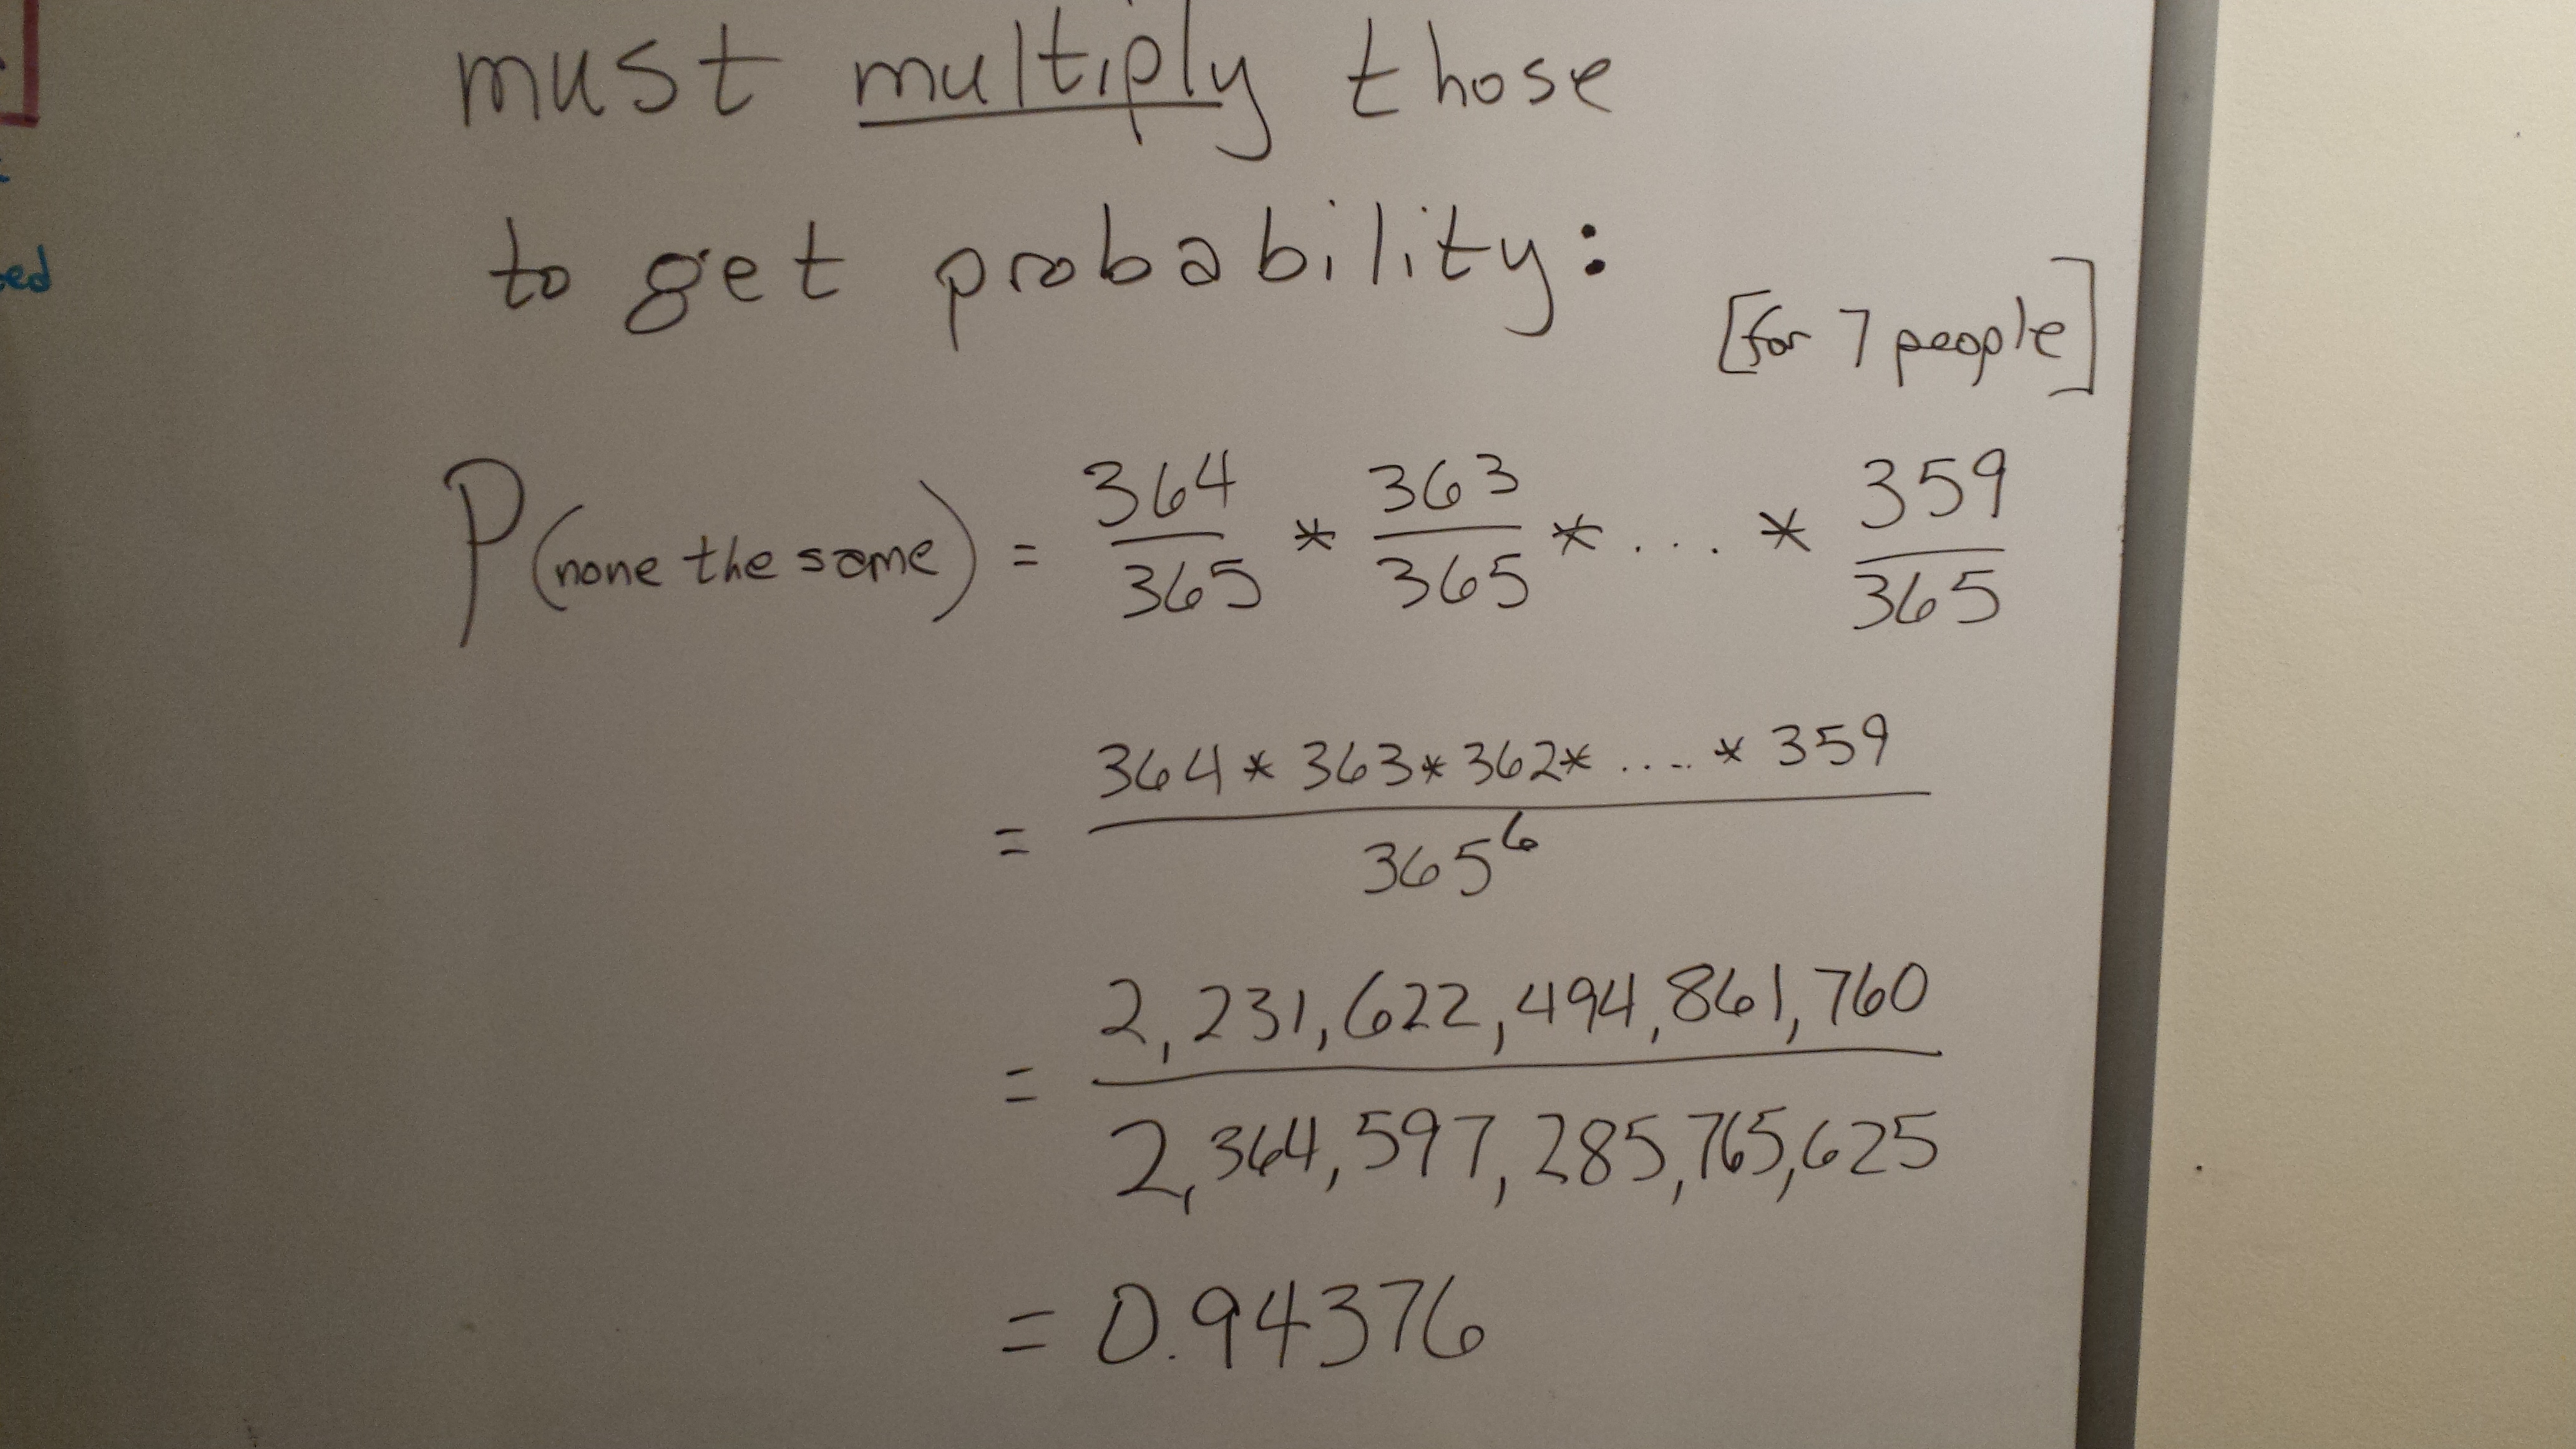 must multiply those
to get probability:
[for 7 people]
P(none the same) = 364/365 * 363/365 * ... * 359/365
= 364 * 363 * 362 * .... * 359 / 365^6
= 2,231,622,494,861,760 / 2,364,597,285,765,625
= 0.94376
ed